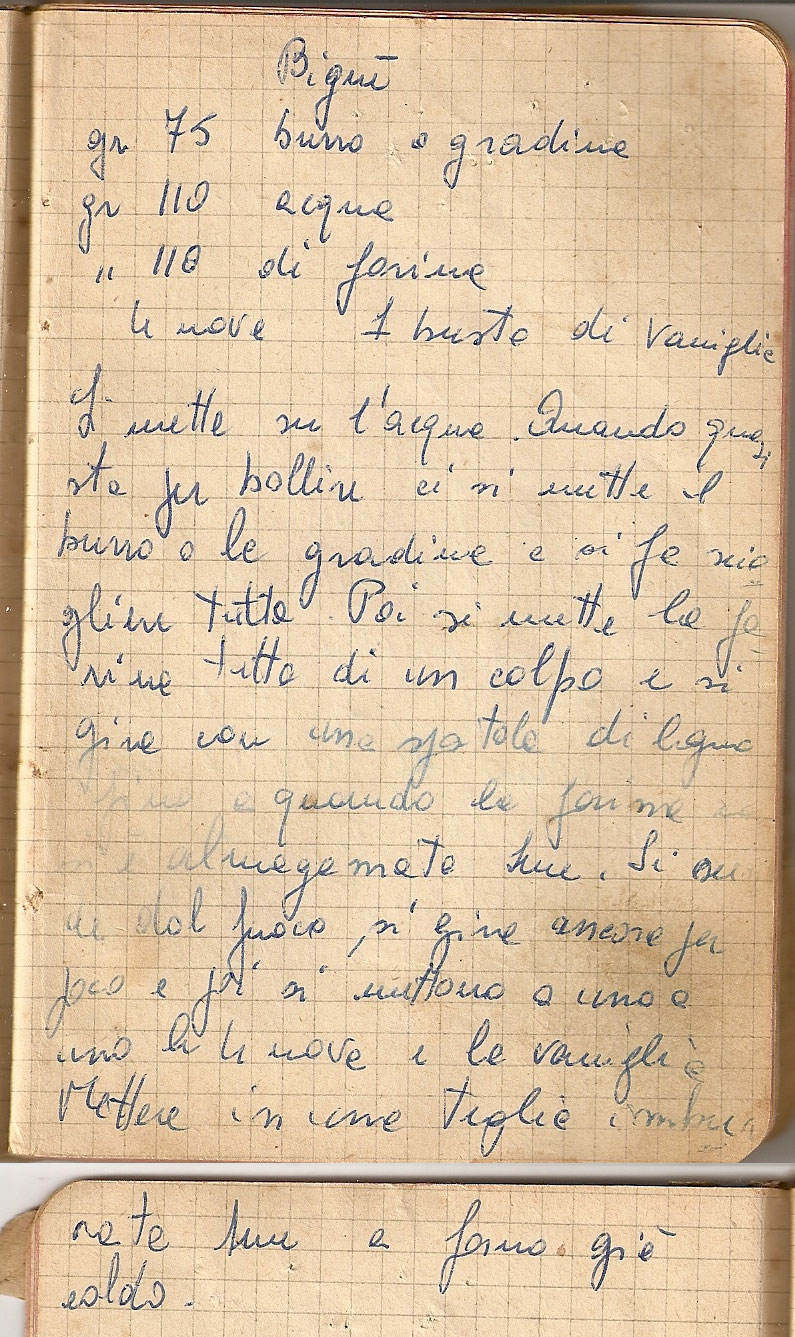 Bignè
gr 75 burro o gradina
gr 110 acqua
" 110 di farina
4 uova 1 busta di vaniglia
Si mette su l'acqua. Quando quasi
sta per bollire ci si mette il
burro o la gradina e si fa scio
gliere tutto. Poi si mette la fa
rina tutta di un colpo e si
gira con una spatola di legno
fino a quando la farina
si è almagamata bene. Si
dal fuoco, si gira ancora per
poco e poi si mettono a uno a
uno le 4 uova e la vaniglia
Mettere in una teglia imbur
rata bene a forno già
caldo.